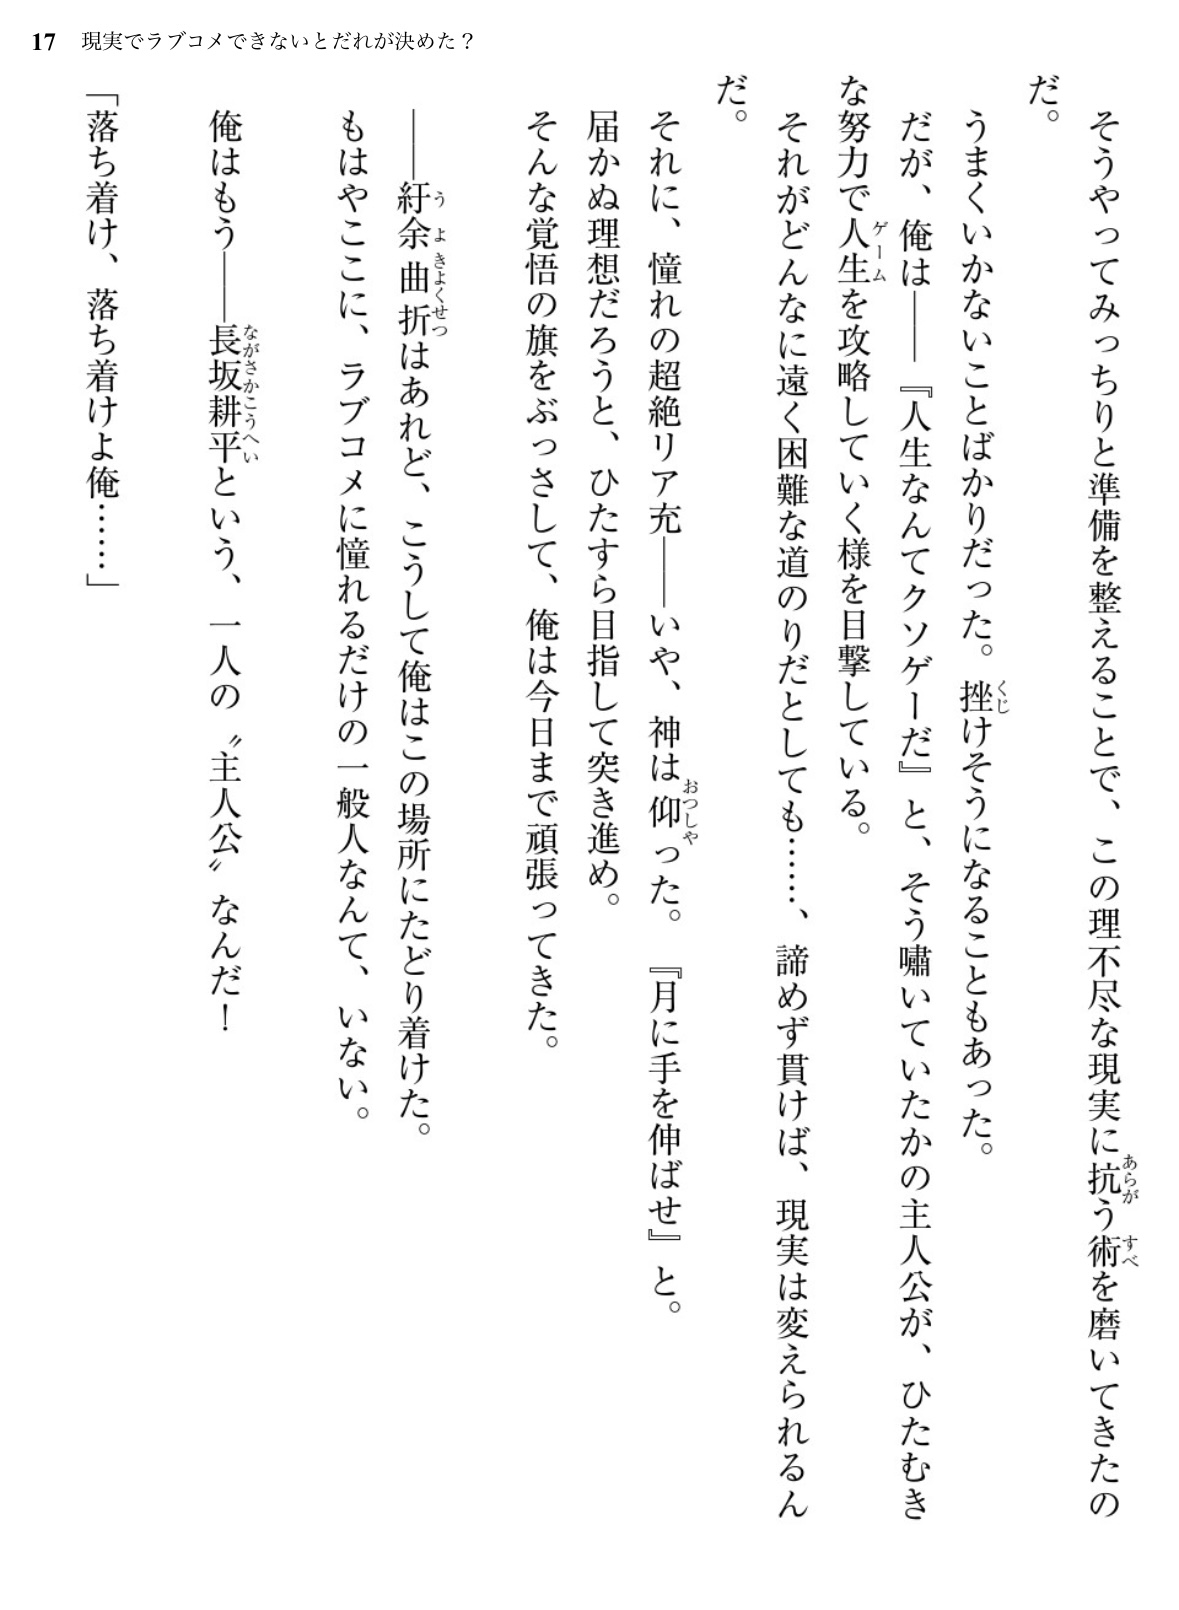 17 現実でラブコメできないとだれが決めた？
　そうやってみっちりと準備を整えることで、この理不尽な現実に抗う術を磨いてきたの
だ。
　うまくいかないことばかりだった。挫けそうになることもあった。
　だが、俺は――『人生なんてクソゲーだ』と、そう嘯いていたかの主人公が、ひたむき
な努力で人生を攻略していく様を目撃している。
　それがどんなに遠く困難な道のりだとしても……、諦めず貫けば、現実は変えられるん
だ。
　それに、憧れの超絶リア充――いや、神は仰った。『月に手を伸ばせ』と。
　届かぬ理想だろうと、ひたすら目指して突き進め。
　そんな覚悟の旗をぶっさして、俺は今日まで頑張ってきた。
　――紆余曲折はあれど、こうして俺はこの場所にたどり着けた。
　もはやここに、ラブコメに憧れるだけの一般人なんて、いない。
　俺はもう――長坂耕平という、一人の〝主人公〟なんだ！
「落ち着け、落ち着けよ俺……」